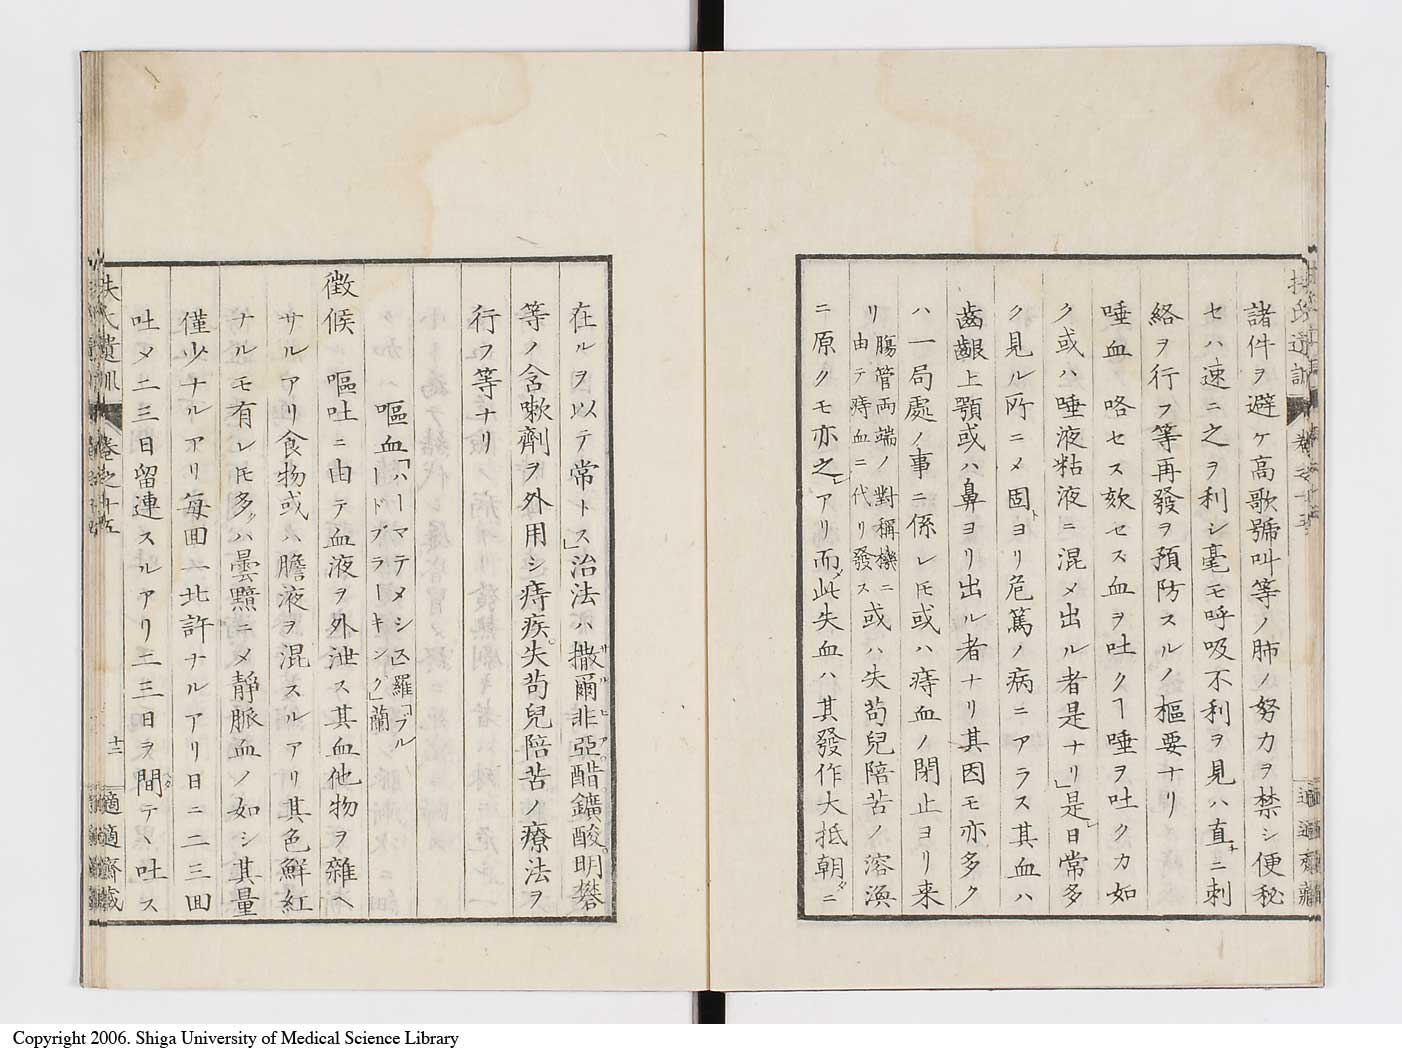 諸件ヲ避ケ高歌號叫等ノ肺ノ努力ヲ禁シ便秘
セハ速ニ之ヲ利シ毫モ呼吸不利ヲ見ハ直ニ刺
絡ヲ行フ等再發ヲ預防スルノ樞要ナリ
唾血咯セス欬セス血ヲ吐クヿ唾ヲ吐クカ如
ク或ハ唾液粘液ニ混メ出ル者是ナリ」是日常多
ク見ル所ニメ固ヨリ危篤ノ病ニアラス其血ハ
齒齦上顎或ハ鼻ヨリ出ル者ナリ其因モ亦多ク
ハ一局處ノ事ニ係レ𪜈或ハ痔血ノ閉止ヨリ来
リ腸管両端ノ對稱機ニ由テ痔血ニ代リ發ス或ハ失苟兒陪苦ノ溶渙
ニ原クモ亦之アリ而此失血ハ其發作大抵朝ニ
扶氏遺訓 卷之十五
適適齋藏
在ルヲ以テ常トス」治法ハ撒爾非亞醋鑛酸明礬
等ノ含嗽劑ヲ外用シ痔疾失苟兒陪苦ノ療法ヲ
行フ等ナリ
嘔血「ハーマテメシス」羅「ブルードブラーキング」蘭
徴候 嘔吐ニ由テ血液ヲ外泄ス其血他物ヲ雜ヘ
サルアリ食物或ハ膽液ヲ混スルアリ其色鮮紅
ナルモ有レ𪜈多クハ曇黯ニメ靜脈血ノ如シ其量
僅少ナルアリ毎回一 許ナルアリ日ニ二三回
吐メ二三日留連スルアリ二三日ヲ間テヽ吐ス
扶氏遺訓 卷之十五
十二
適適齋藏
Copyright 2006. Shiga University of Medical Science Library